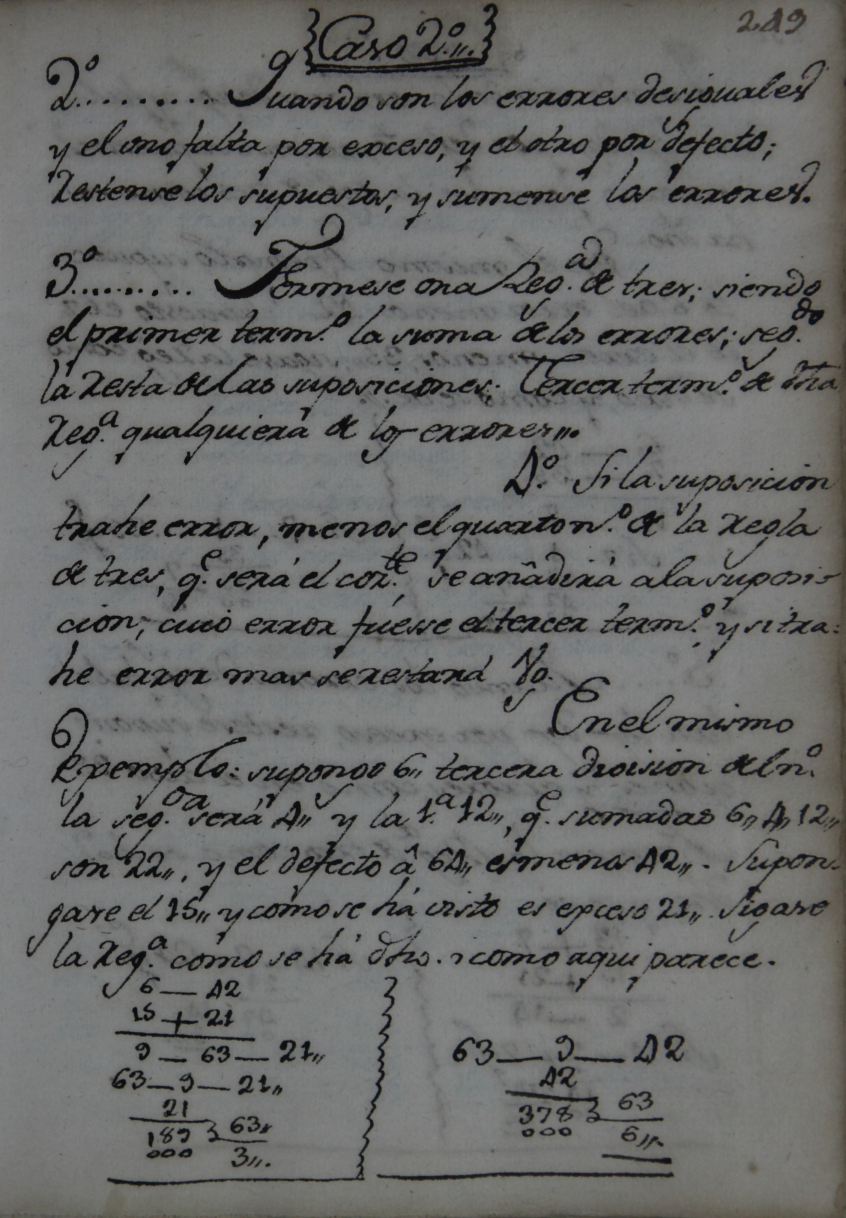 249
Caso 2º„.
2º.......... Quando son los errores desiguales
y el uno falta por exceso, y el otro por defecto;
Restense los supuestos, y sumense los errores.
3º......... Formese una Regª. de tres; siendo
el primer termº. la suma de los errores; segdo.
la Resta de las suposiciones; Tercer termº. de dha
Regª. qualquiera de los errores„.
4º. Si la suposicion
trahe error, menos el quarto nº. de la Regla
de tres, qe. será el corte., se añadirá a la suposi-
cion, cuio error fuesse el tercer termº. y si tra=
he error mas se restará Yo.
En el mismo
Exemplo: supongo 6„ tercera division del nº.
la segda. será 4„ y la 1ª. 12„, qe. sumadas 6„ 4„ 12„
son 22„, y el defecto â 64„ es menos 42„. Supon-
gase el 15„ y como se há visto es exceso 21„ Sigase
la Regª. como se há dho. como aqui parece.
6 — 42
15 + 21
9 — 63 — 21„
63 — 9 — 21„
21
189 } 63„
000 3„.
63 — 9 — 42
42
378 } 63
000 6„.